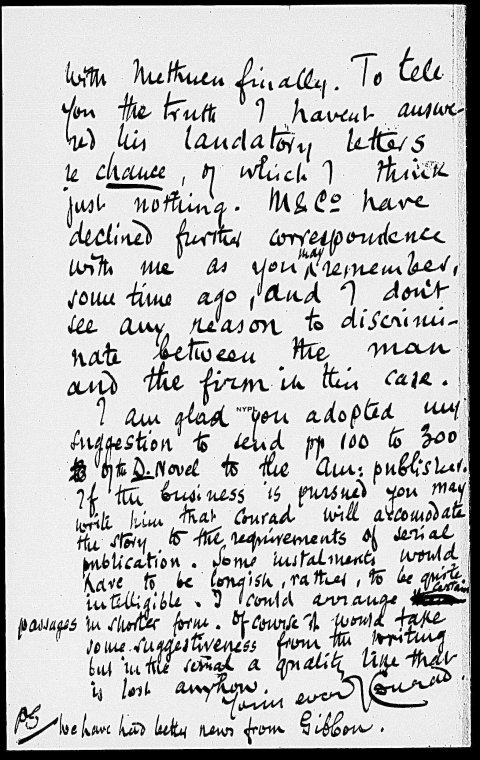 with Methuen finally. To tell
you the truth I havent answe-
red his laudatory letters
re chance, of which I think
just nothing. M & Co have
declined further correspondence
with me as you may remember,
some time ago, and I don't
see any reason to discrimi-
nate between the man
and the firm in this case.
I am glad you adopted my
NYPL
suggestion to send pp 100 to 300
of the D. Novel to the Am: publisher.
If the business is pursued you may
write him that Conrad will accomodate
the story to the requirements of serial
publication. Some instalments would
have to be longish, rather, to be quite
intelligible. I could arrange certain
passages in shorter form. Of course it would take
some suggestiveness from the writing
but in the serial a quality like that
is lost anyhow.
Yours ever Conrad.
PS we have had better news from Gibbon.